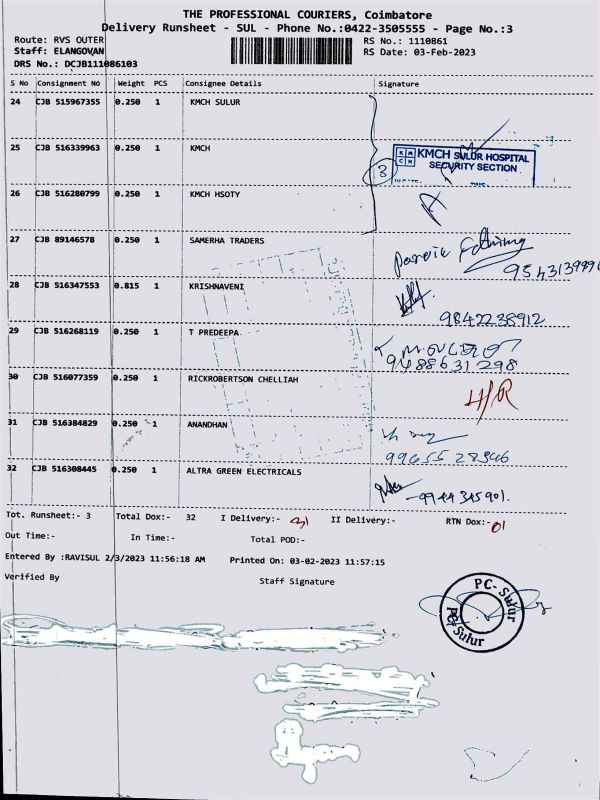 THE PROFESSIONAL COURIERS, Coimbatore
Delivery Runsheet - SUL - Phone No.:0422-3505555 - Page No.:3
Route: RVS OUTER
RS No.: 1110861
Staff: ELANGOVAN
RS Date: 03-Feb-2023
DRS No.: DCJB111086103
S No Consignment No Weight PCS Consignee Details Signature
24 CJB 515967355 0.250 1 KMCH SULUR
25 CJB 516339963 0.250 1 KMCH
3
KMCH SULUR HOSPITAL
SECURITY SECTION
26 CJB 516280799 0.250 1 KMCH HSOTY
27 CJB 89146578 0.250 1 SAMERHA TRADERS
28 CJB 516347553 0.815 1 KRISHNAVENI
9842238912
29 CJB 516268119 0.250 1 T PREDEEPA
9488631298
30 CJB 516077359 0.250 1 RICKROBERTSON CHELLIAH
31 CJB 516384829 0.250 1 ANANDHAN
32 CJB 516308445 0.250 1 ALTRA GREEN ELECTRICALS
-9944345901.
Tot. Runsheet:- 3 Total Dox:- 32 I Delivery:- 31 II Delivery:- RTN Dox:- 01
Out Time:- In Time:- Total POD:-
Entered By :RAVISUL 2/3/2023 11:56:18 AM Printed On: 03-02-2023 11:57:15
Verified By Staff Signature
PC-Sulur
PC-Sulur